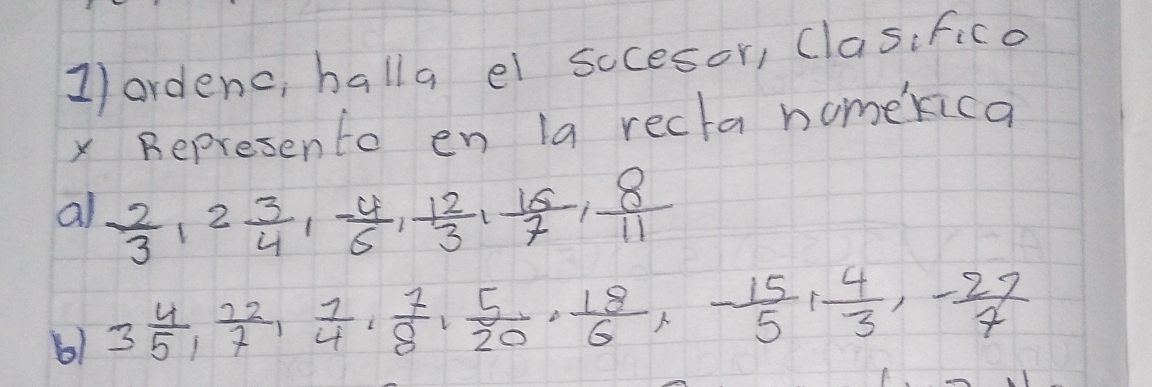 1) ordene, halla el sucesor, Clasifico
y Represento en la recta numérica
a) 2/3, 2 3/4, -4/6, 12/3, 16/7, 8/11
b) 3 4/5, 22/7, 7/4, 7/8, 5/20, 18/6, -15/5, 4/3, -27/7